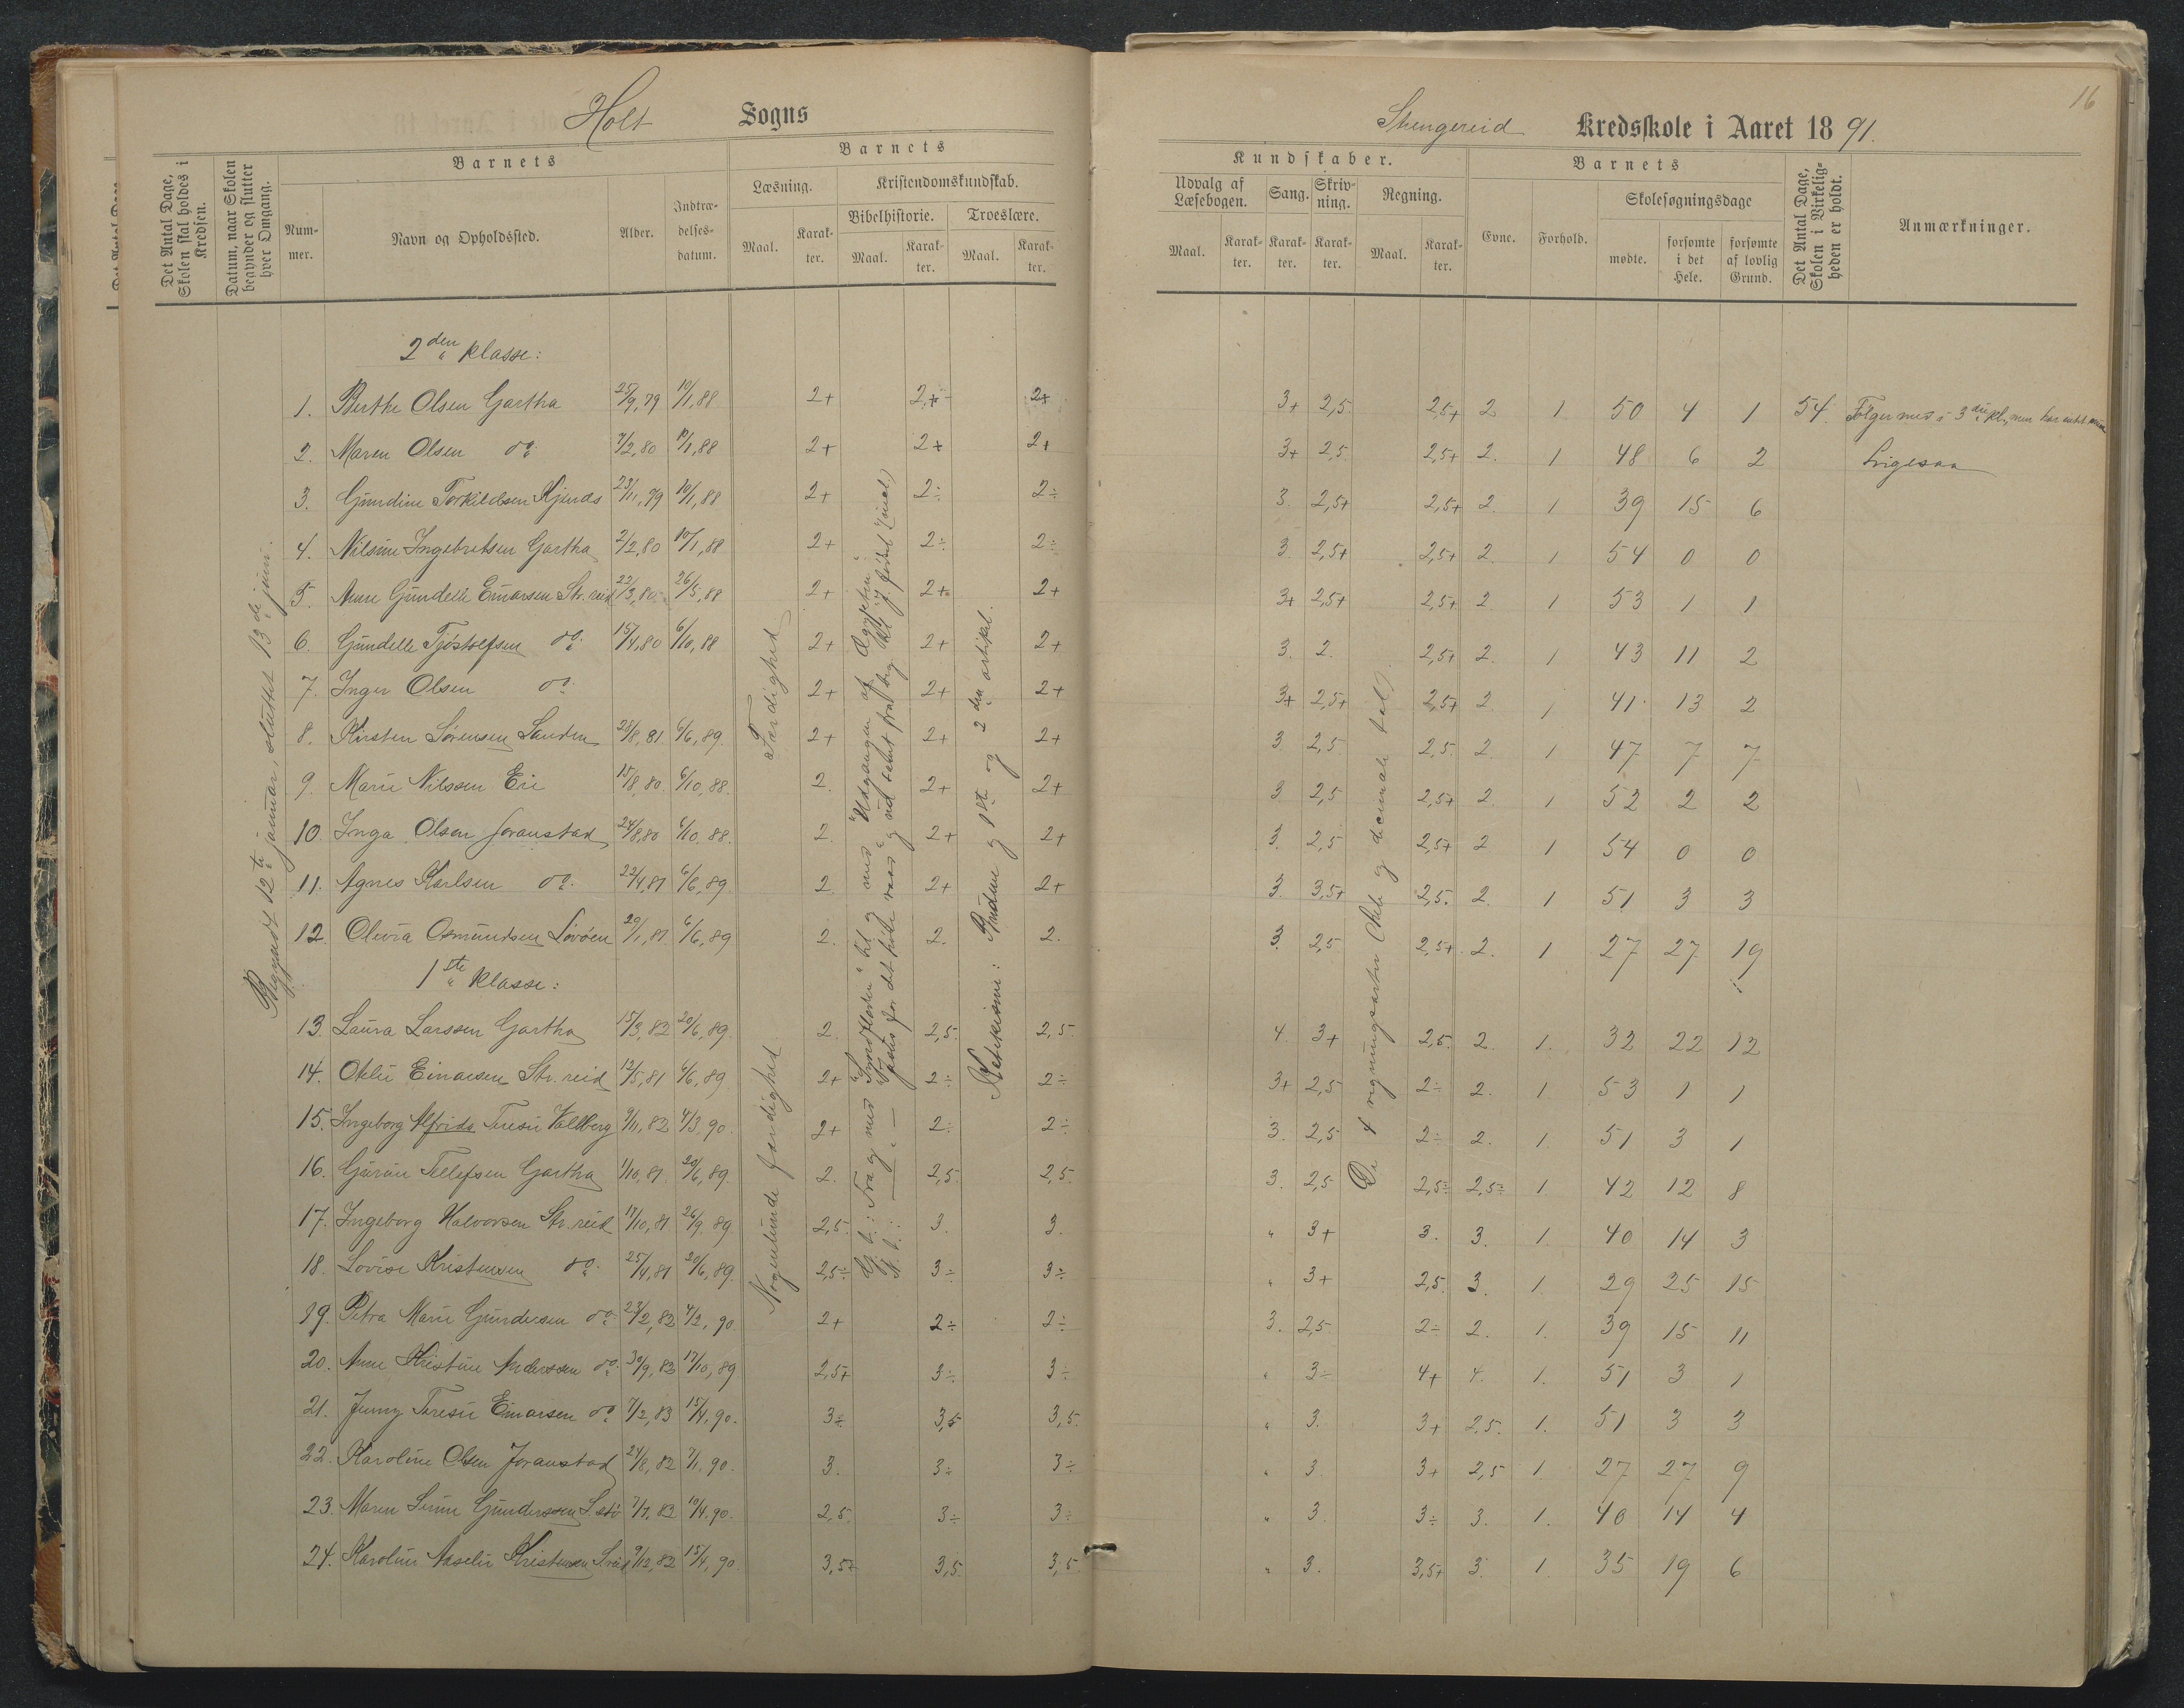 Holt Sogns
Det Antal Dage, Skolen skal holdes i Kredsen.
Datum, naar Skolen begynder og slutter hver Omgang.
Barnets
Nummer.
Navn og Opholdssted.
Alder.
Indtrædelses-datum.
Barnets
Læsning.
Maal.
Karakter.
Kristendomskundskab.
Bibelhistorie.
Maal.
Karakter.
Troeslære.
Maal.
Karakter.
Begyndt 12te januar, sluttet 13de juni.
2den klasse:
1. Berthe Olsen Gartha 25/9,79 10/1,88 2+ 2+ 2+
2. Maren Olsen do 7/2,80 10/1,88 2+ 2+ 2+
3. Gundine Torkildsen 23/11,79 10/1,88 2+ 2÷ 2÷
4. Nilsine Ingebretsen Gartha 2/2,80 10/1,88 2+ 2÷ 2÷
5. Anne Gundelle Einarsen Str.reid 22/3,80 26/5,88 2+ 2+ 2+
6. Gundelle Tjöstolfsen do 15/4,80 6/10,88 2+ 2+ 2+
7. Inger Olsen do 2+ 2+ 2+
8. Kirsten Sørensen Sanden 28/8,81 6/6,89. 2+ 2+ 2+
9. Marie Nilssen Eie 15/8,80 6/10,88. 2. 2+ 2+
10. Inga Olsen Joranstad 24/8,80 6/10,88. 2. 2+ 2+
11. Agnes Karlsen do 22/4,81 6/6,89. 2. 2+ 2+
12. Olevia Osmundsen Lövöen 20/1,81 6/6,89 2. 2. 2.
1ste klasse:
13. Laura Larssen Gartha 15/3,82 20/6,89. 2. 2,5. 2,5.
14. Otelie Einarsen Str.reid 12/5,81 6/6,89 2+ 2÷ 2÷
15. Ingeborg Alfrida Teresie Vallberg 9/11,82 4/3,90. 2+ 2÷ 2÷
16. Gurine Tellefsen Gartha 1/10,81. 20/6,89. 2. 2,5. 2,5.
17. Ingeborg Halvorsen Str.reid 17/10,81. 26/9,89. 2,5. 3. 3.
18. Lovise Kristensen do 25/4,81 20/6,89. 2,5÷ 3÷ 3÷
19. Petra Marie Gundersen do 23/2,82 4/2,90. 2+ 2÷ 2÷
20. Anne Kristine Anderssen do 30/9,82 17/10,89 2,5+ 3÷ 3÷
21. Jenny Teresie Einarsen do 7/2,83 15/4,90. 3÷ 3,5 3,5.
22. Karoline Olsen Joranstad 24/8,82 7/1,90. 3. 3÷ 3÷
23. Maren Gunderssen 7/7,82 10/4,90. 2,5. 3÷ 3÷
24. Karoline Aaselie Kristensen 9/12,82 15/4,90 3,5+ 3,5. 3,5.
Færdighed
Nogenlunde færdighed.
G. t.: Fra og med "Syndfloden" til og med "Udgangen af Ægypten".
N. t.:
Katekisme: Budene og 1ste og 2den artikel.
16
Strengereid Kredsskole i Aaret 1891.
Kundskaber.
Udvalg af Læsebogen.
Maal.
Karakter.
Sang.
Karakter.
Skrivning.
Karakter.
Regning.
Maal.
Karakter.
Barnets
Evne.
Forhold.
Skolesøgningsdage
mødte.
forsømte i det Hele.
forsømte af lovlig Grund.
Det Antal Dage, Skolen i Virkeligheden er holdt.
Anmærkninger.
De 4 regningsarter (hele og decimale tal).
3+ 2,5. 2,5+ 2 1. 50 4 1 54. Følger med i 3die kl., men har intet
3+ 2,5 2,5+ 2. 1 48 6 2 Ligesaa
3. 2,5+ 2,5+ 2. 1 39 15 6
3. 2,5+ 2,5+ 2. 1 54 0 0
3+ 2,5+ 2,5+ 2 1 53 1 1
3. 2. 2,5+ 2. 1 43 11 2
3+ 2,5+ 2,5+ 2. 1 41 13 2
3 2,5. 2,5. 2 1 47 7 7
3 2,5 2,5+ 2 1 52 2 2
3. 2,5 2,5+ 2 1 54 0 0
3. 3,5+ 2,5. 2. 1 51 3 3
3 2,5 2,5+ 2. 1 27 27 19
4 3+ 2,5. 2. 1. 32 22 12
3+ 2,5 2÷ 2. 1 53 1 1
3. 2,5 2÷ 2. 1. 51 3 1
3. 2,5 2,5÷ 2,5÷ 1. 42 12 8
" 3+ 3. 3. 1. 40 14 3
" 3+ 2,5. 3. 1. 29 25 15
3. 2,5 2÷ 2. 1. 39 15 11
" 3÷ 4+ 4. 1. 51 3 1
" 3. 3+ 2,5. 1. 51 3 3
" 3 3+ 2,5 1. 27 27 9
" 3. 3÷ 3. 1. 40 14 4
" 3. 3,5+ 3. 1. 35 19 6